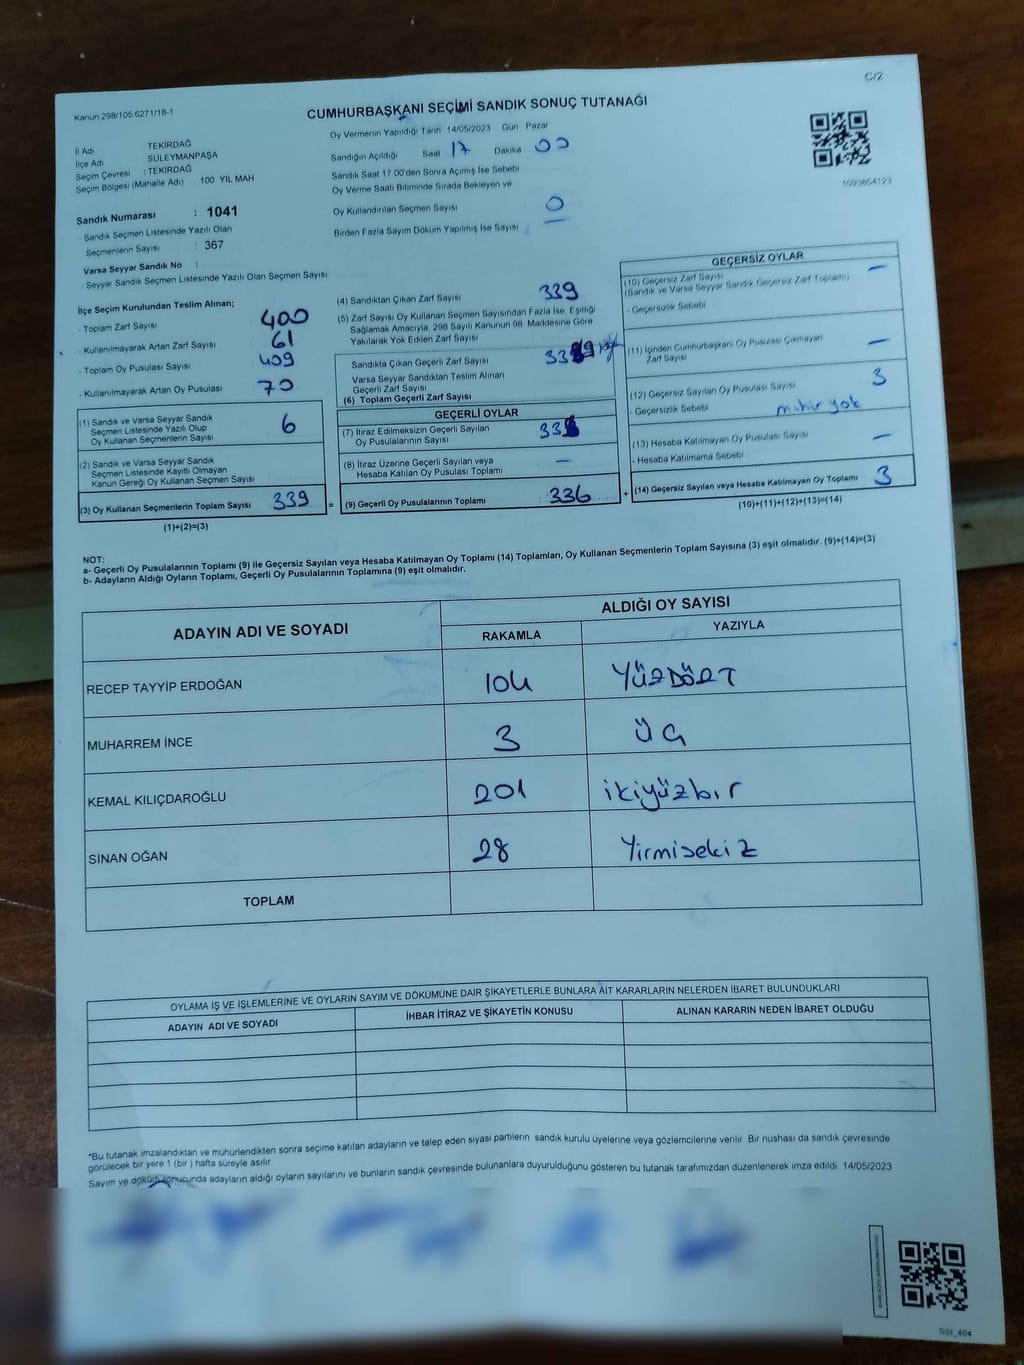 C/2
Kanun 298/105.6271/18-1
CUMHURBAŞKANI SEÇİMİ SANDIK SONUÇ TUTANAĞI
İl Adı TEKİRDAĞ
İlçe Adı SULEYMANPAŞA
Seçim Çevresi : TEKİRDAĞ
Seçim Bölgesi (Mahalle Adı) 100 YIL MAH
Oy Vermenin Yapıldığı Tarih 14/05/2023 Gün Pazar
Sandığın Açıldığı Saat 17 Dakika 00
Sandık Saat 17 00'den Sonra Açımış İse Sebebi
Oy Verme Saati Bitiminde Sırada Bekleyen ve
Oy Kullandırılan Seçmen Sayısı 0
Birden Fazla Sayım Döküm Yapılmış İse Sayısı
1093654123
Sandık Numarası : 1041
- Sandık Seçmen Listesinde Yazılı Olan
Seçmenlerin Sayısı : 367
Varsa Seyyar Sandık No :
- Seyyar Sandık Seçmen Listesinde Yazılı Olan Seçmen Sayısı
İlçe Seçim Kurulundan Teslim Alınan;
- Toplam Zarf Sayısı 400
- Kullanılmayarak Artan Zarf Sayısı 61
- Toplam Oy Pusulası Sayısı 409
- Kullanılmayarak Artan Oy Pusulası 70
(1) Sandık ve Varsa Seyyar Sandık
Seçmen Listesinde Yazılı Olup
Oy Kullanan Seçmenlerin Sayısı 6
(2) Sandık ve Varsa Seyyar Sandık
Seçmen Listesinde Kayıtlı Olmayan
Kanun Gereği Oy Kullanan Seçmen Sayısı
(3) Oy Kullanan Seçmenlerin Toplam Sayısı 339
(1)+(2)=(3)
(4) Sandıktan Çıkan Zarf Sayısı 339
(5) Zarf Sayısı Oy Kullanan Seçmen Sayısından Fazla İse, Eşitliği
Sağlamak Amacıyla, 298 Sayılı Kanunun 98. Maddesine Göre
Yakılarak Yok Edilen Zarf Sayısı
Sandıkta Çıkan Geçerli Zarf Sayısı
Varsa Seyyar Sandıktan Teslim Alınan
Geçerli Zarf Sayısı
(6) Toplam Geçerli Zarf Sayısı
GEÇERLİ OYLAR
(7) İtiraz Edilmeksizin Geçerli Sayılan
Oy Pusulalarının Sayısı
(8) İtiraz Üzerine Geçerli Sayılan veya
Hesaba Katılan Oy Pusulası Toplamı –
= (9) Geçerli Oy Pusulalarının Toplamı 336
GEÇERSİZ OYLAR
(10) Geçersiz Zarf Sayısı –
(Sandık ve Varsa Seyyar Sandık Geçersiz Zarf Toplamı)
- Geçersizlik Sebebi
(11) İçinden Cumhurbaşkanı Oy Pusulası Çıkmayan
Zarf Sayısı –
(12) Geçersiz Sayılan Oy Pusulası Sayısı 3
- Geçersizlik Sebebi mühür yok
(13) Hesaba Katılmayan Oy Pusulası Sayısı –
- Hesaba Katılmama Sebebi
+ (14) Geçersiz Sayılan veya Hesaba Katılmayan Oy Toplamı 3
(10)+(11)+(12)+(13)=(14)
NOT:
a- Geçerli Oy Pusulalarının Toplamı (9) ile Geçersiz Sayılan veya Hesaba Katılmayan Oy Toplamı (14) Toplamları, Oy Kullanan Seçmenlerin Toplam Sayısına (3) eşit olmalıdır. (9)+(14)=(3)
b- Adayların Aldığı Oyların Toplamı, Geçerli Oy Pusulalarının Toplamına (9) eşit olmalıdır.
ADAYIN ADI VE SOYADI ALDIĞI OY SAYISI
RAKAMLA YAZIYLA
RECEP TAYYİP ERDOĞAN 104 YÜZDÖRT
MUHARREM İNCE 3 ÜÇ
KEMAL KILIÇDAROĞLU 201 ikiyüzbir
SİNAN OĞAN 28 Yirmisekiz
TOPLAM
OYLAMA İŞ VE İŞLEMLERİNE VE OYLARIN SAYIM VE DÖKÜMÜNE DAİR ŞİKAYETLERLE BUNLARA AİT KARARLARIN NELERDEN İBARET BULUNDUKLARI
ADAYIN ADI VE SOYADI İHBAR İTİRAZ VE ŞİKAYETİN KONUSU ALINAN KARARIN NEDEN İBARET OLDUĞU
*Bu tutanak imzalandıktan ve mühürlendikten sonra seçime katılan adayların ve talep eden siyasi partilerin sandık kurulu üyelerine veya gözlemcilerine verilir. Bir nushası da sandık çevresinde
görülecek bir yere 1 (bir ) hafta süreyle asılır.
Sayım ve döküm sonucunda adayların aldığı oyların sayılarını ve bunların sandık çevresinde bulunanlara duyurulduğunu gösteren bu tutanak tarafımızdan düzenlenerek imza edildi. 14/05/2023
SS1_404